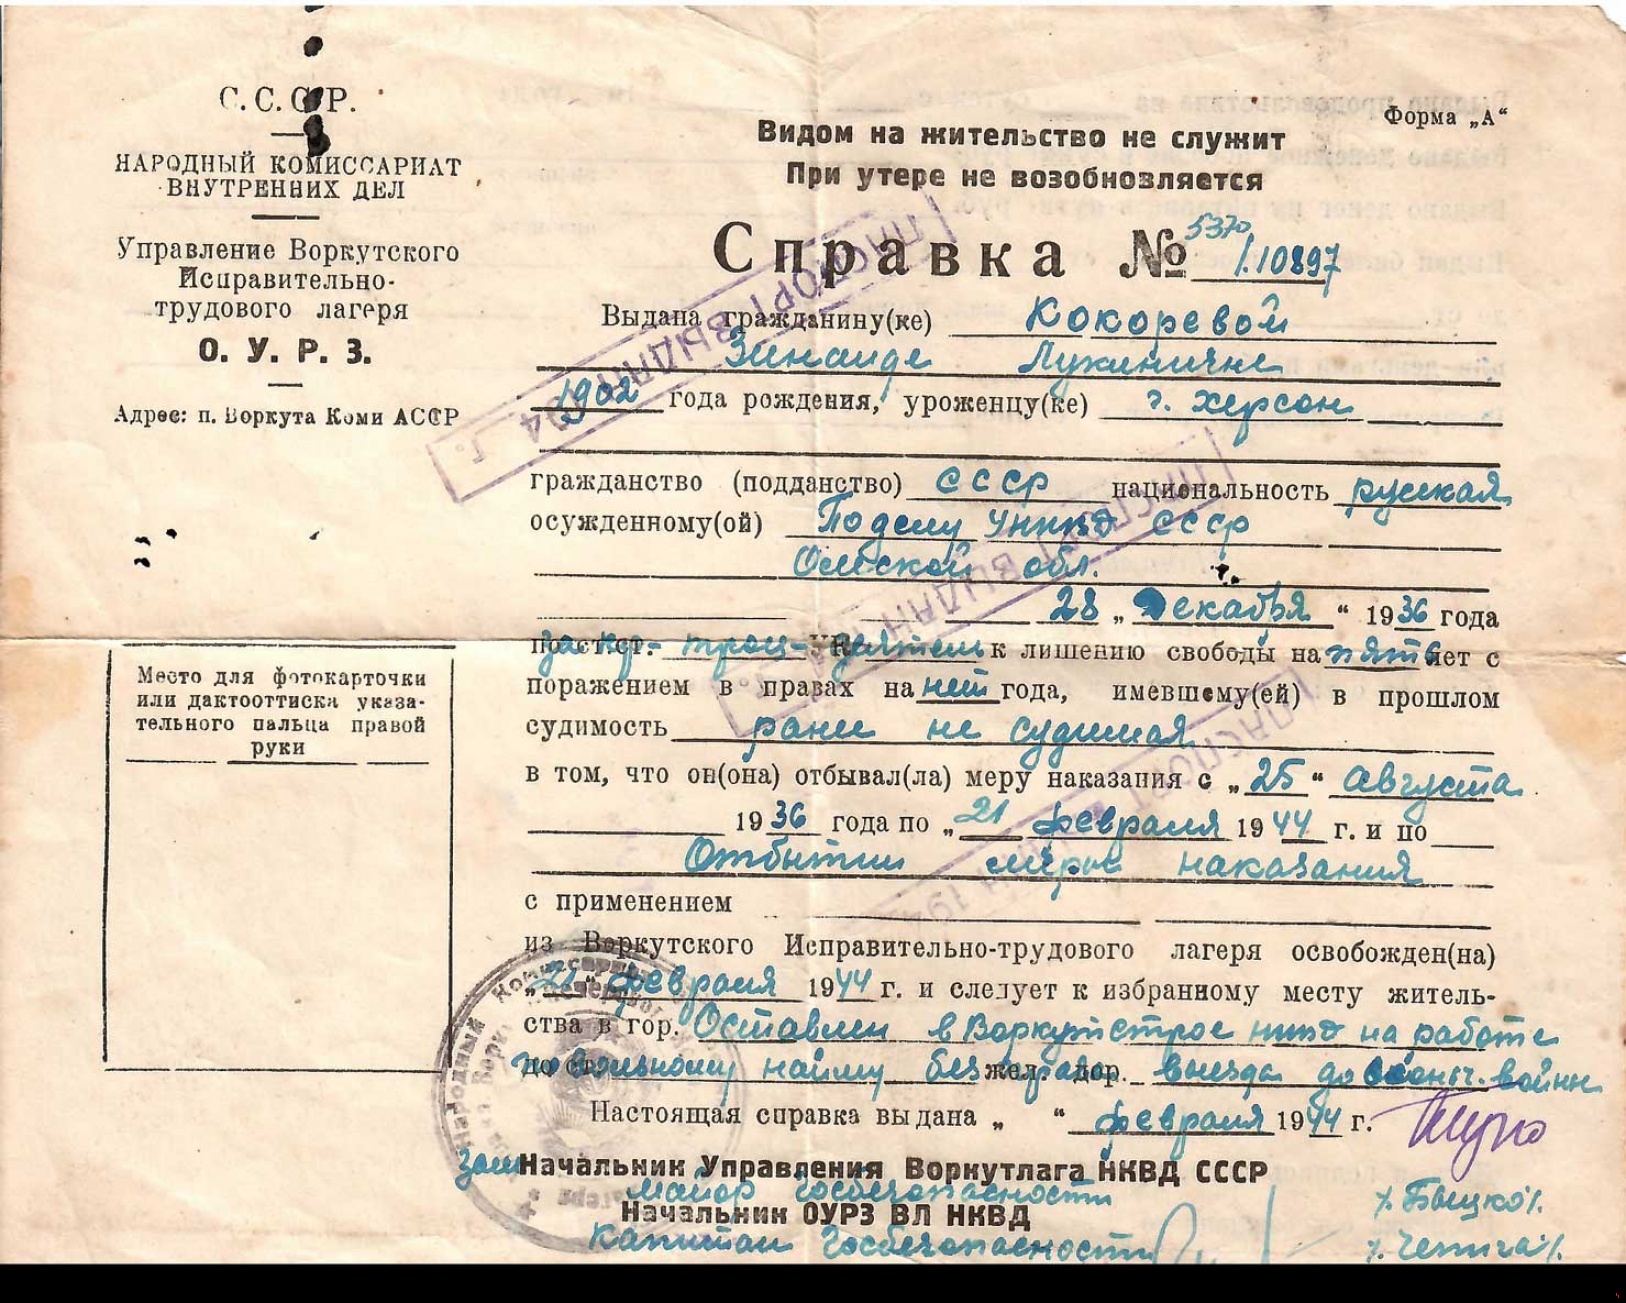 С.С.С.Р.
НАРОДНЫЙ КОМИССАРИАТ
ВНУТРЕННИХ ДЕЛ
Управление Воркутского
Исправительно-
трудового лагеря
О. У. Р. З.
Адрес: п. Воркута Коми АССР
Форма „А“
Видом на жительство не служит
При утере не возобновляется
Справка № 5370
/10897
Выдана гражданину(ке) Кокоревой
Зинаиде Лукиничне
1902 года рождения, уроженцу(ке) г. Херсон
гражданство (подданство) СССР национальность русская
осужденному(ой) По делу УНКВД СССР
Омской обл.
28 „Декабря“ 1936 года
по ст.ст. за кр-троц-деятельн к лишению свободы на пять лет с
поражением в правах на нет года, имевшему(ей) в прошлом
судимость ранее не судимая
в том, что он(она) отбывал(ла) меру наказания с „25“ августа
1936 года по „21 февраля 1944 г. и по
Отбытии меры наказания
с применением
из Воркутского Исправительно-трудового лагеря освобожден(на)
„21“ февраля 1944 г. и следует к избранному месту житель-
ства в гор. Оставлен в Воркутстрое НКВД на работе
до ст. по вольному найму без права жел. дор. выезда до оконч. войны
Настоящая справка выдана „ “ февраля 1944 г.
Зам Начальник Управления Воркутлага НКВД СССР
Майор Госбезопасности
Начальник ОУРЗ ВЛ НКВД
Капитан Госбезопасности
Место для фотокарточки
или дактооттиска указа-
тельного пальца правой
руки
ПАСПОРТ ВЫДАН
194 г.
ПАСПОРТ ВЫДАН
г.
ПАСПОРТ
194
Народный Комиссариат